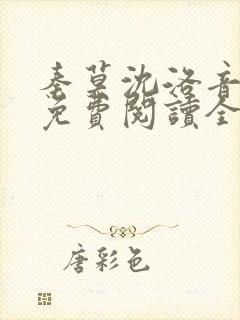 秦墓沈洛音
免費閱讀全
唐彩色